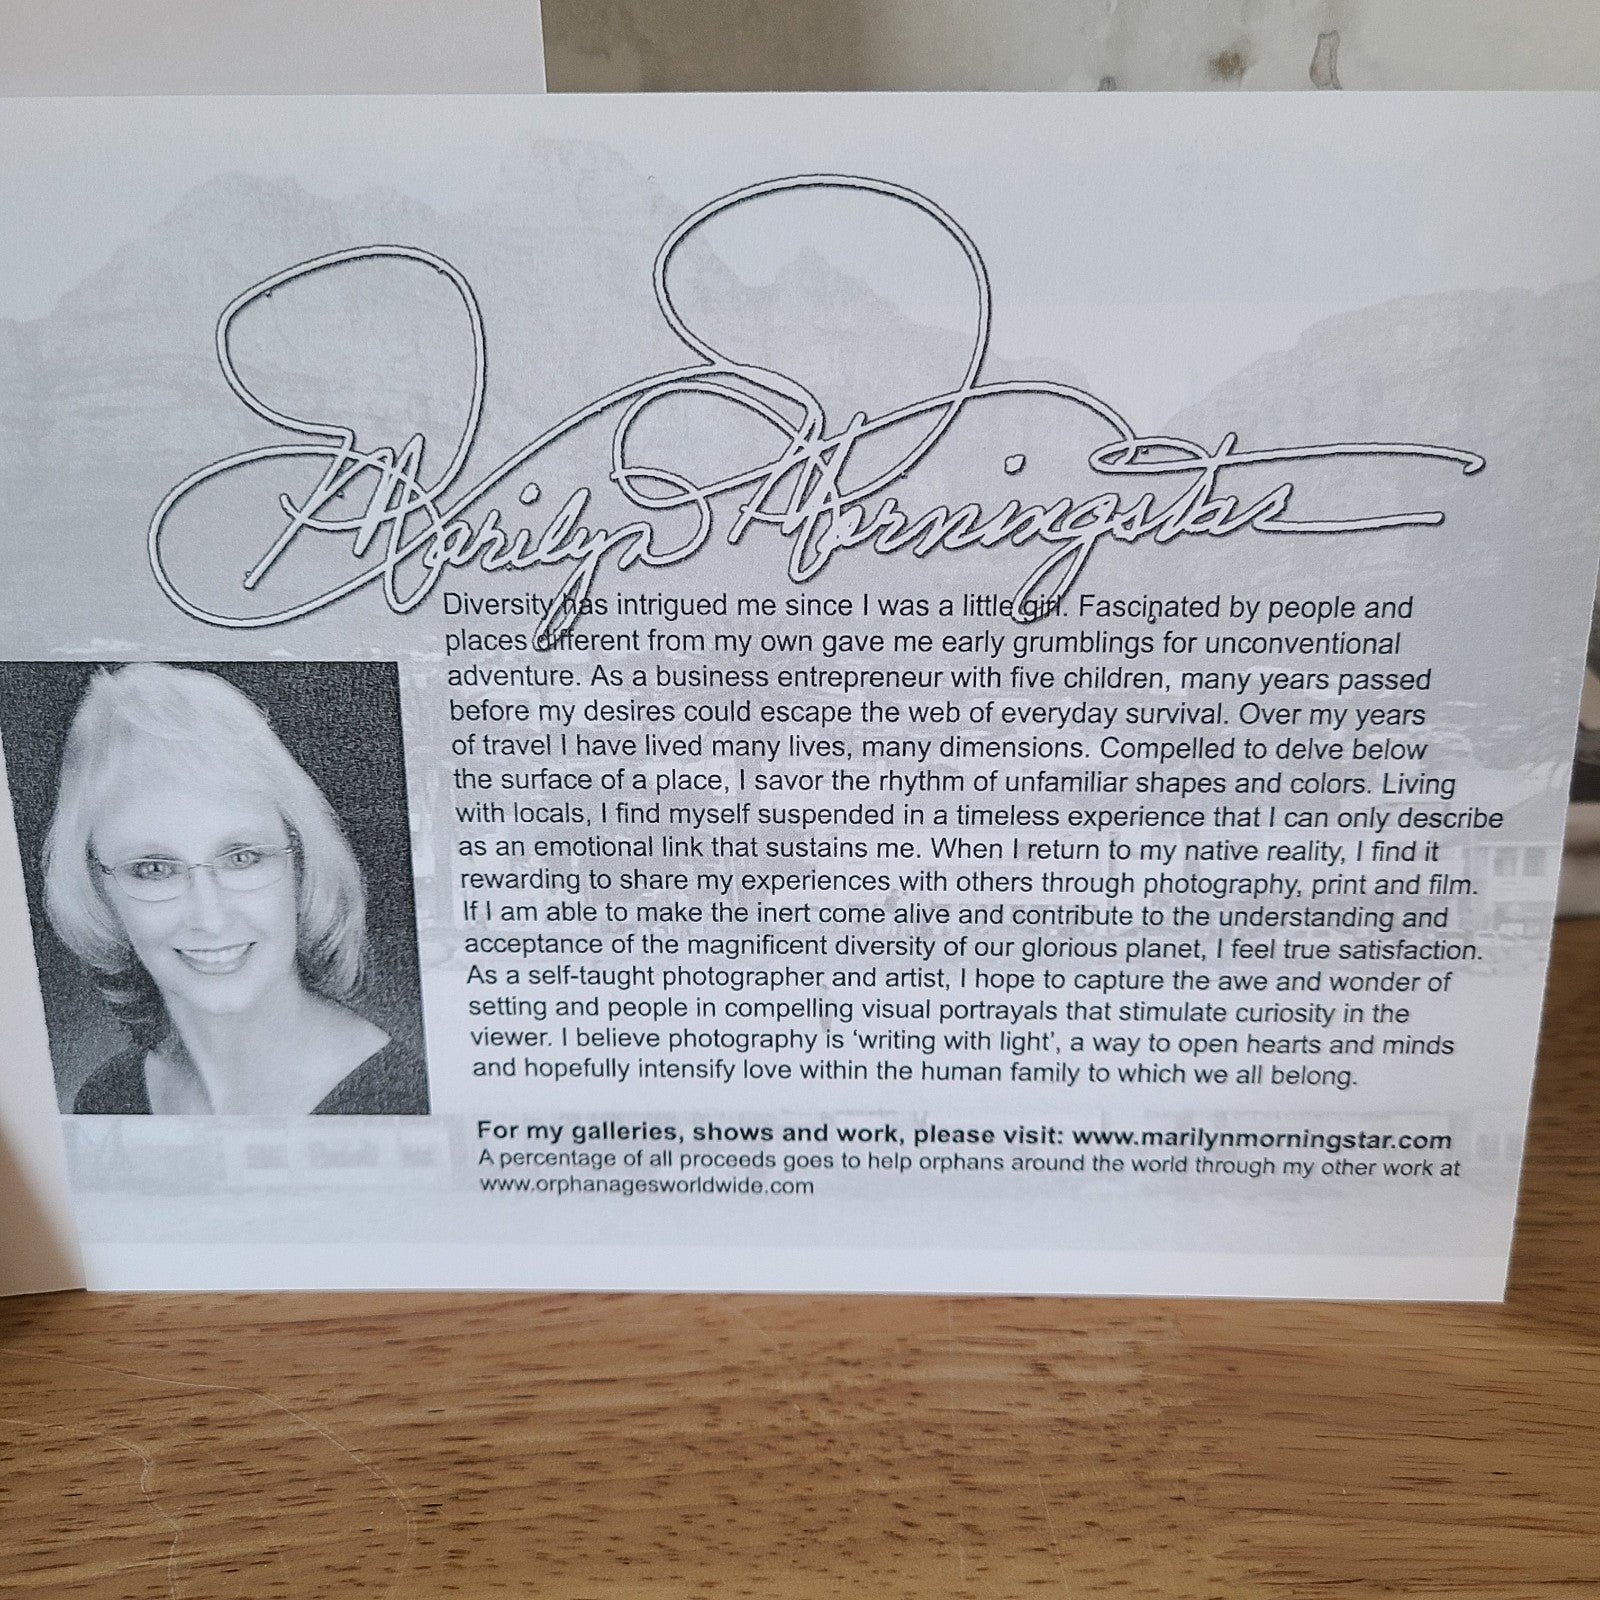 Marilyn Morningstar
Diversity has intrigued me since I was a little girl. Fascinated by people and
places different from my own gave me early grumblings for unconventional
adventure. As a business entrepreneur with five children, many years passed
before my desires could escape the web of everyday survival. Over my years
of travel I have lived many lives, many dimensions. Compelled to delve below
the surface of a place, I savor the rhythm of unfamiliar shapes and colors. Living
with locals, I find myself suspended in a timeless experience that I can only describe
as an emotional link that sustains me. When I return to my native reality, I find it
rewarding to share my experiences with others through photography, print and film.
If I am able to make the inert come alive and contribute to the understanding and
acceptance of the magnificent diversity of our glorious planet, I feel true satisfaction.
As a self-taught photographer and artist, I hope to capture the awe and wonder of
setting and people in compelling visual portrayals that stimulate curiosity in the
viewer. I believe photography is ‘writing with light’, a way to open hearts and minds
and hopefully intensify love within the human family to which we all belong.
For my galleries, shows and work, please visit: www.marilynmorningstar.com
A percentage of all proceeds goes to help orphans around the world through my other work at
www.orphanagesworldwide.com